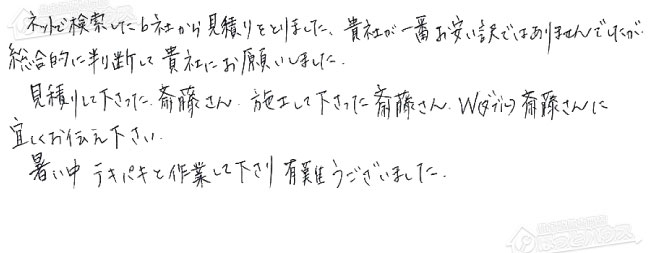 ネットで検索した6社から見積りをとりました、貴社が一番お安い訳ではありませんでしたが
総合的に判断して貴社にお願いしました.
見積りして下さった斎藤さん. 施工して下さった斎藤さん. W(ダブル)斎藤さんに
宜しくお伝え下さい.
暑い中 テキパキと作業して下さり 有難うございました.